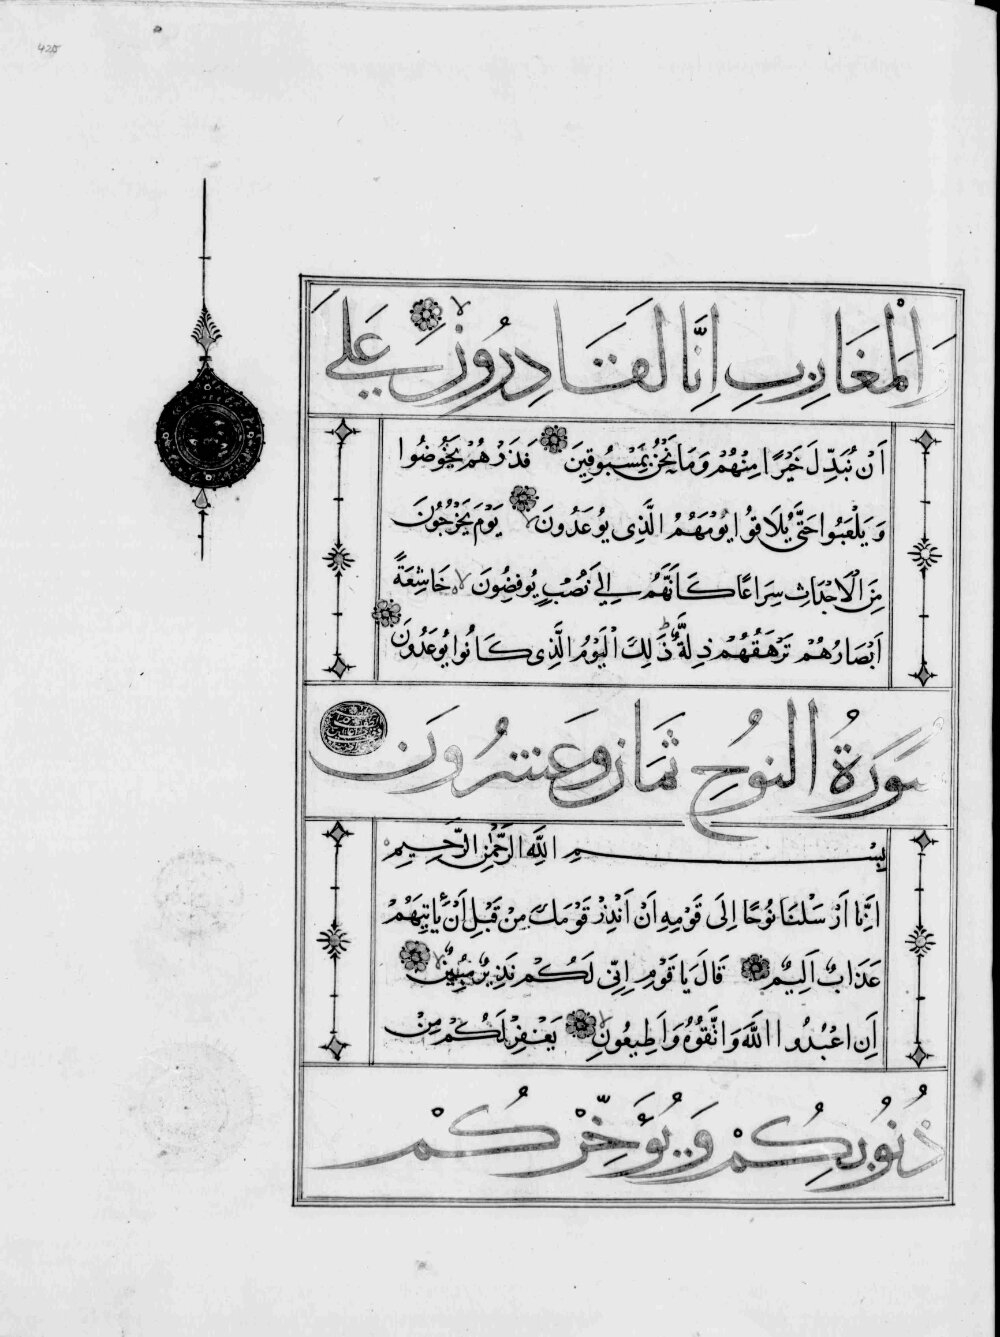 425
وَالْمَغَارِبِ اِنَّا لَقَادِرُونَ لا عَلٰى
اَنْ نُبَدِّلَ خَيْرًا مِنْهُمْ وَمَا نَحْنُ بِمَسْبُوقِينَ فَذَرْهُمْ يَخُوضُوا
وَيَلْعَبُوا حَتَّى يُلَاقُوا يَوْمَهُمُ الَّذِى يُوعَدُونَ لا يَوْمَ يَخْرُجُونَ
مِنَ الْاَجْدَاثِ سِرَاعًا كَاَنَّهُمْ اِلَى نُصُبٍ يُوفِضُونَ لا خَاشِعَةً
اَبْصَارُهُمْ تَرْهَقُهُمْ ذِلَّةٌ ط ذَلِكَ الْيَوْمُ الَّذِى كَانُوا يُوعَدُونَ
سُورَةُ النوُحِ ثَمَانٍ وَعِشْرُونَ
بِسْمِ اللَّهِ الرَّحْمٰنِ الرَّحِيمِ
اِنَّا اَرْسَلْنَا نُوحًا اِلَى قَوْمِهِ اَنْ اَنْذِرْ قَوْمَكَ مِنْ قَبْلِ اَنْ يَأْتِيَهُمْ
عَذَابٌ اَلِيمٌ قَالَ يَا قَوْمِ اِنِّى لَكُمْ نَذِيرٌ مُبِينٌ لا
اَنِ اعْبُدُوا اللَّهَ وَاتَّقُوهُ وَاَطِيعُونِ لا يَغْفِرْ لَكُمْ مِنْ
ذُنُوبِكُمْ وَيُؤَخِّرْكُمْ